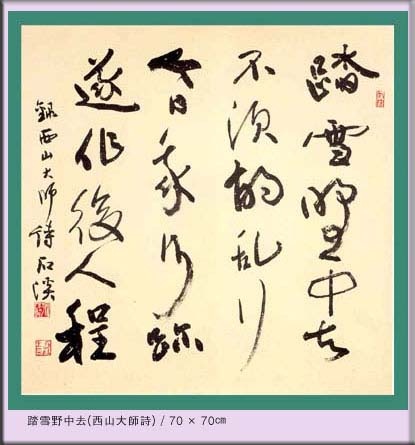 踏雪野中去
不須胡乱行
今日我行跡
遂作後人程
錄西山大師詩 石溪
踏雪野中去(西山大師詩) / 70 × 70㎝